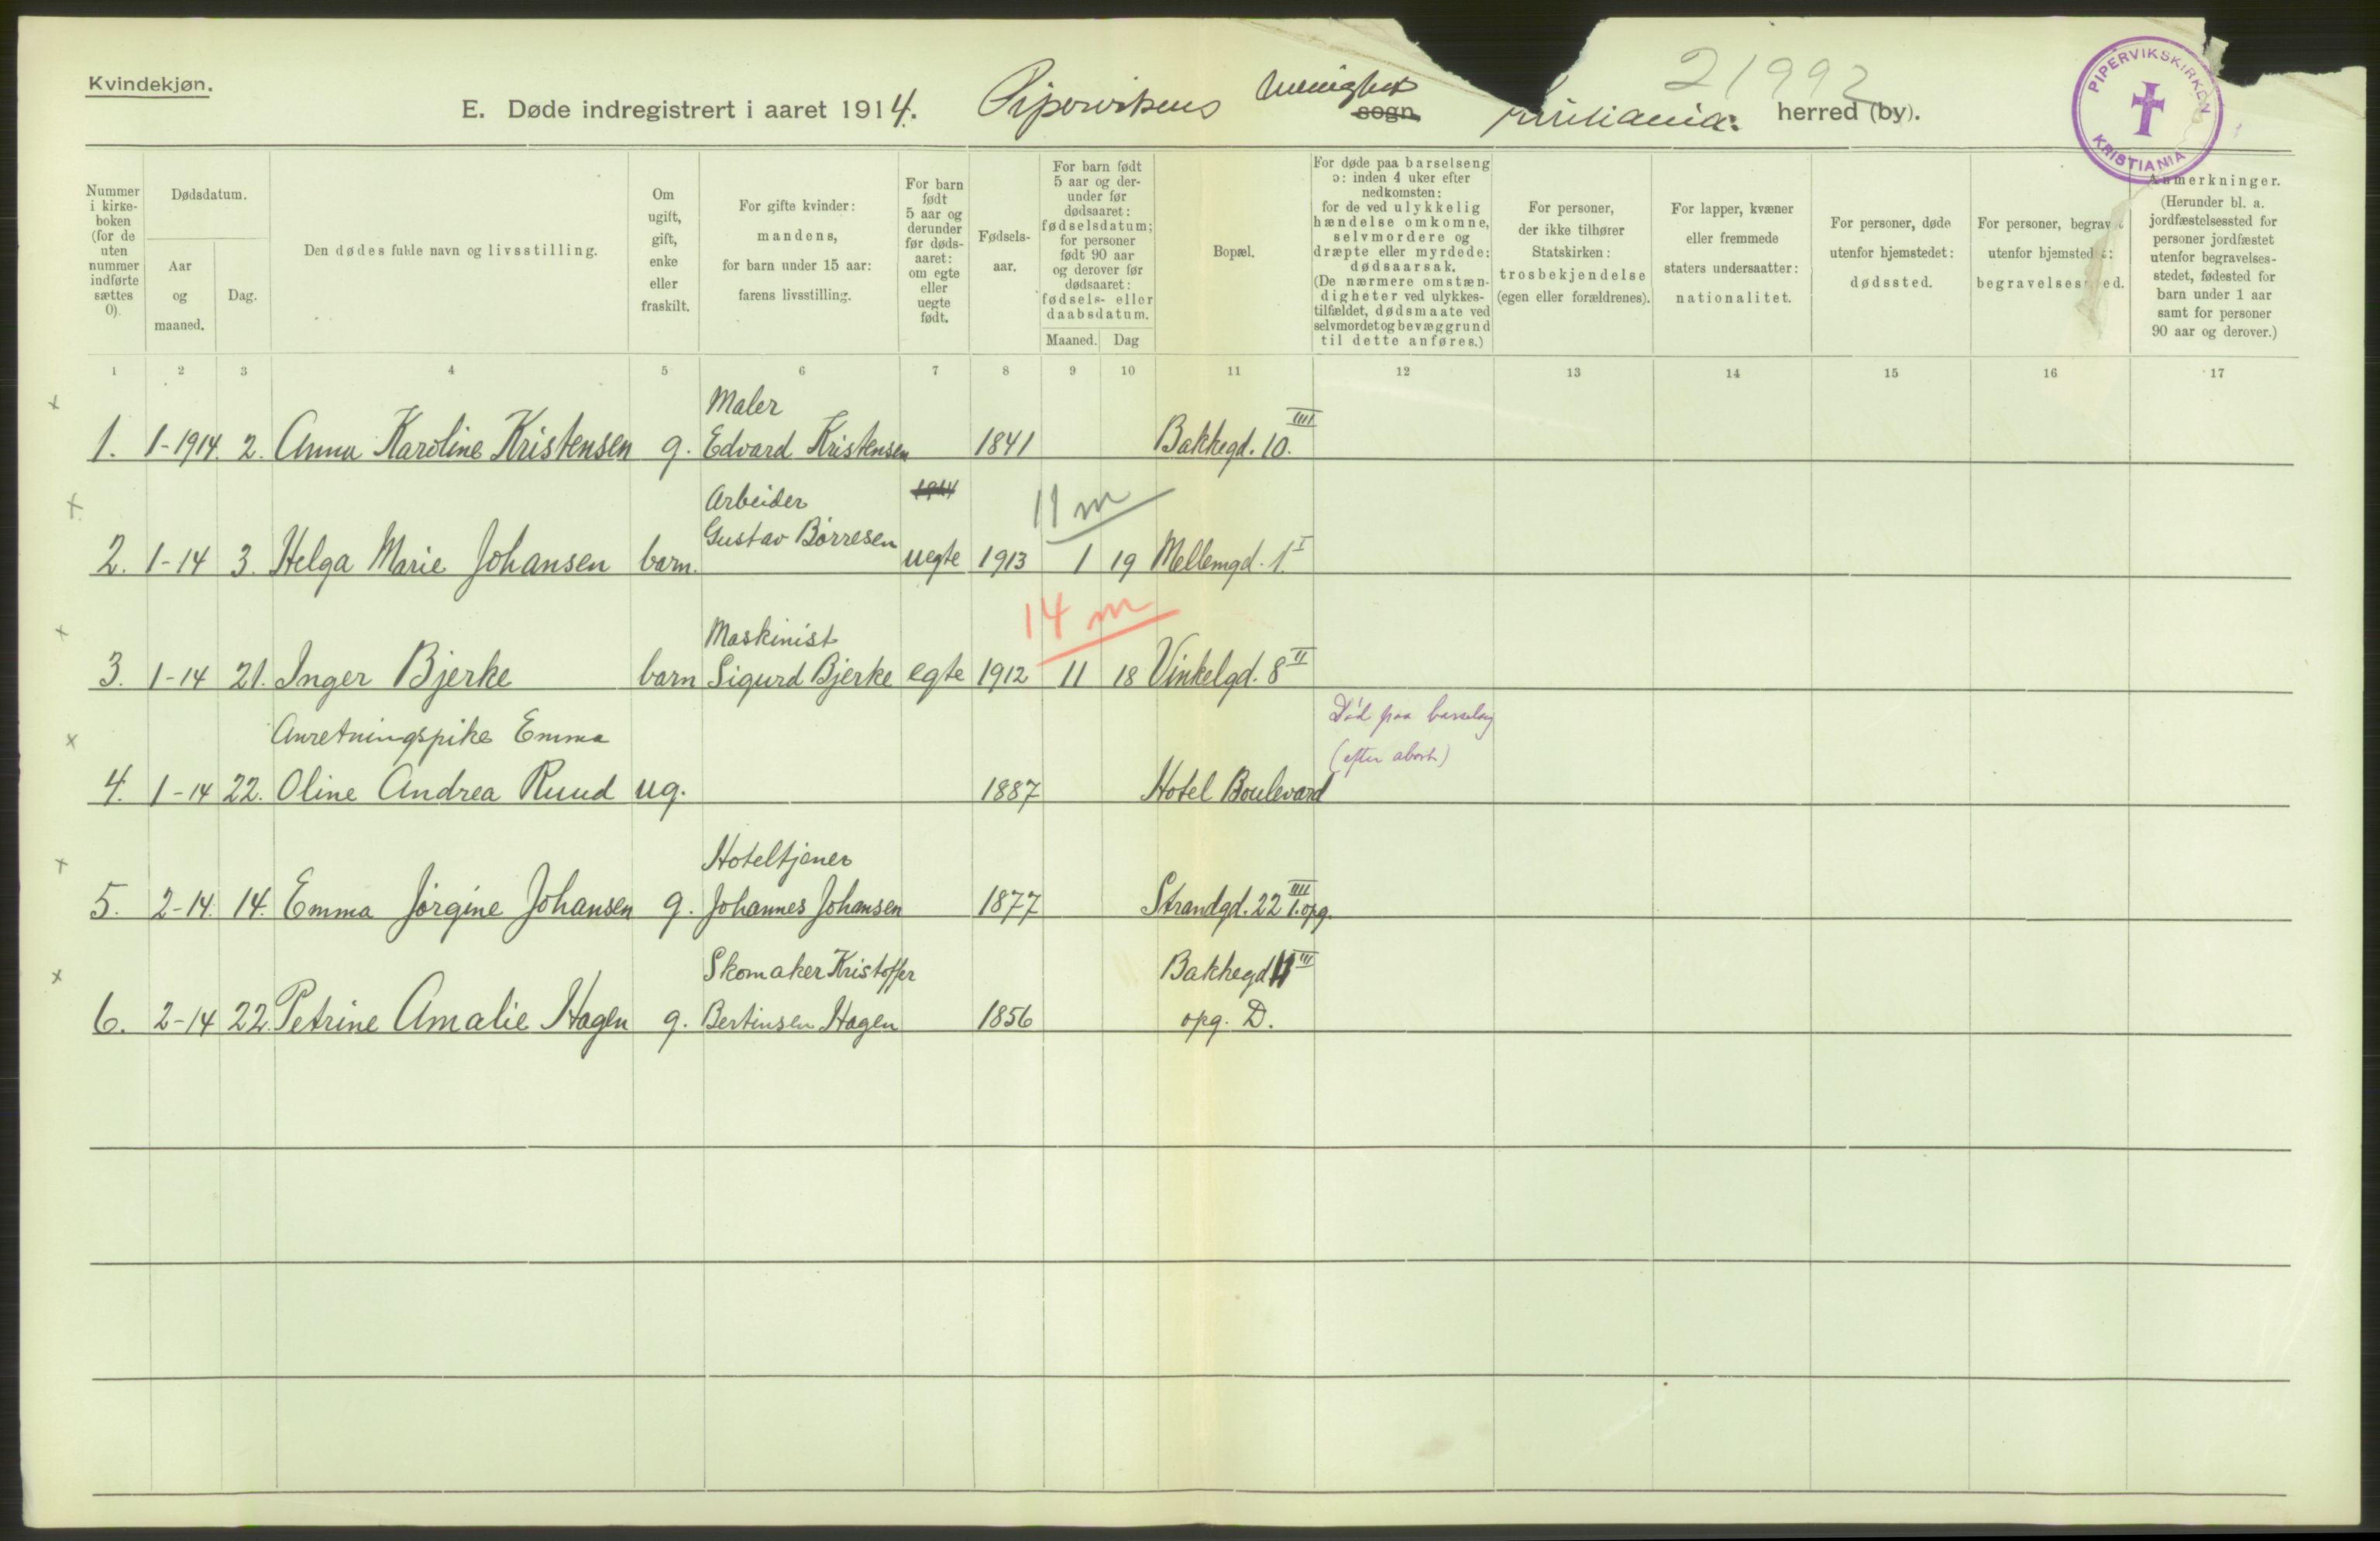 Kvindekjøn.
21992
E. Døde indregistrert i aaret 1914. Pipervikens menighet sogn Kristiania: herred (by).
PIPERVIKSKIRKEN
KRISTIANIA
Nummer i kirke-boken (for de uten nummer indførte sættes 0).
Dødsdatum.
Aar og maaned.
Dag.
Den dødes fulde navn og livsstilling.
Om ugift, gift, enke eller fraskilt.
For gifte kvinder: mandens, for barn under 15 aar: farens livsstilling.
For barn født 5 aar og derunder før døds-aaret: om egte eller uegte født.
Fødsels-aar.
For barn født 5 aar og der-under før dødsaaret: fødselsdatum; for personer født 90 aar og derover før dødsaaret: fødsels- eller daabsdatum.
Maaned. Dag
Bopæl.
For døde paa barselseng ɔ: inden 4 uker efter nedkomsten: for de ved ulykkelig hændelse omkomne, selvmordere og dræpte eller myrdede: dødsaarsak. (De nærmere omstæn-digheter ved ulykkes-tilfældet, dødsmaate ved selvmordet og bevæggrund til dette anføres.)
For personer, der ikke tilhører Statskirken: trosbekjendelse (egen eller forældrenes).
For lapper, kvæner eller fremmede staters undersaatter: nationalitet.
For personer, døde utenfor hjemstedet: dødssted.
For personer, begravet utenfor hjemstedet: begravelsessted.
Anmerkninger. (Herunder bl. a. jordfæstelsessted for personer jordfæstet utenfor begravelses-stedet, fødested for barn under 1 aar samt for personer 90 aar og derover.)
1 2 3 4 5 6 7 8 9 10 11 12 13 14 15 16 17
x Maler
1. 1-1914. 2. Anna Karoline Kristensen g. Edvard Kristensen 1841 Bakkegd. 10. IIII
x Arbeider 1914 11 m
2. 1-14 3. Helga Marie Johansen barn. Gustav Børresen uegte 1913 1 19 Mellemgd. 1. I
x Maskinist 14 m
3. 1-14 21. Inger Bjerke barn Sigurd Bjerke egte 1912 11 18 Vinkelgd. 8 II
x Anretningspike Emma Død paa barselseng
(efter abort)
4. 1-14 22. Oline Andrea Ruud ug. 1887 Hotel Boulevard
x Hoteltjener
5. 2-14. 14. Emma Jørgine Johansen g. Johannes Johansen 1877 Strandgd. 22 IIII 1. opg.
x Skomaker Kristoffer Bakkegd 11 III
6. 2-14 22. Petrine Amalie Hagen g. Bertinsen Hagen 1856 opg. D.